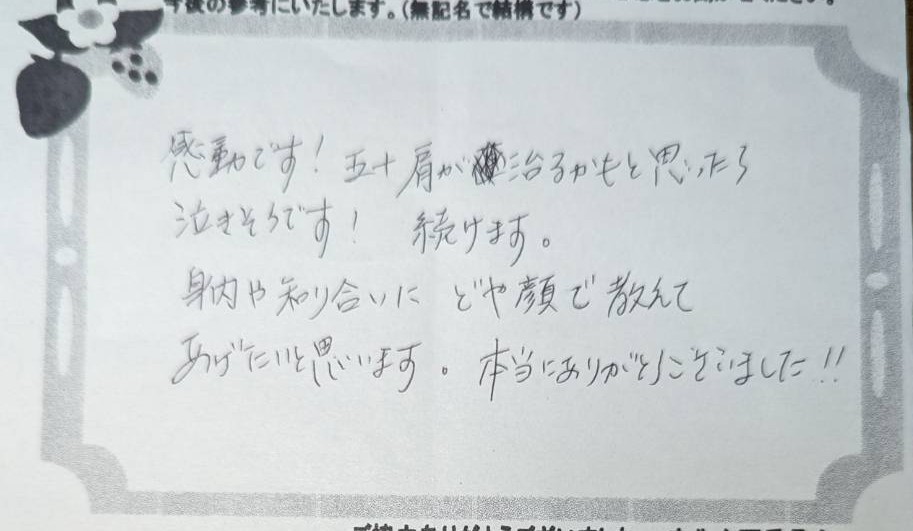 今後の参考にいたします。(無記名で結構です)
感動です！五十肩が治るかもと思ったら
泣きそうです！ 続けます。
身内や知り合いに どや顔で教えて
あげたいと思います。本当にありがとうございました!!